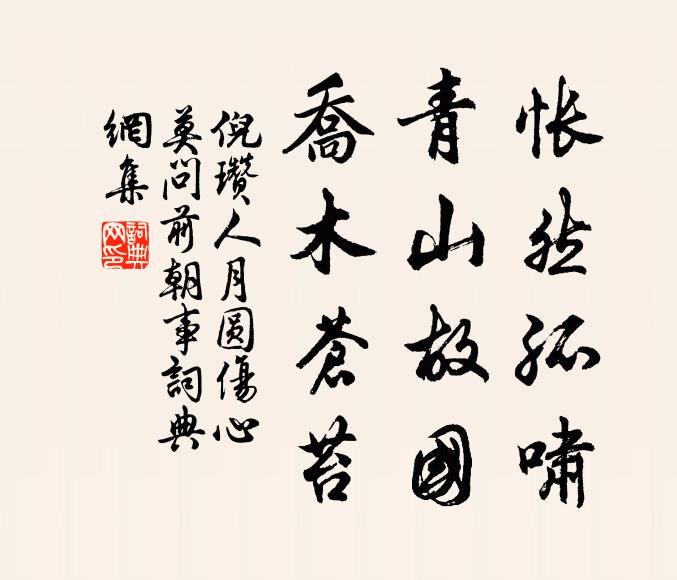 悵然孤嘯
青山故國
喬木蒼苔
倪瓚人月圓傷心
莫問前朝事詞典
網集
詞典
网印